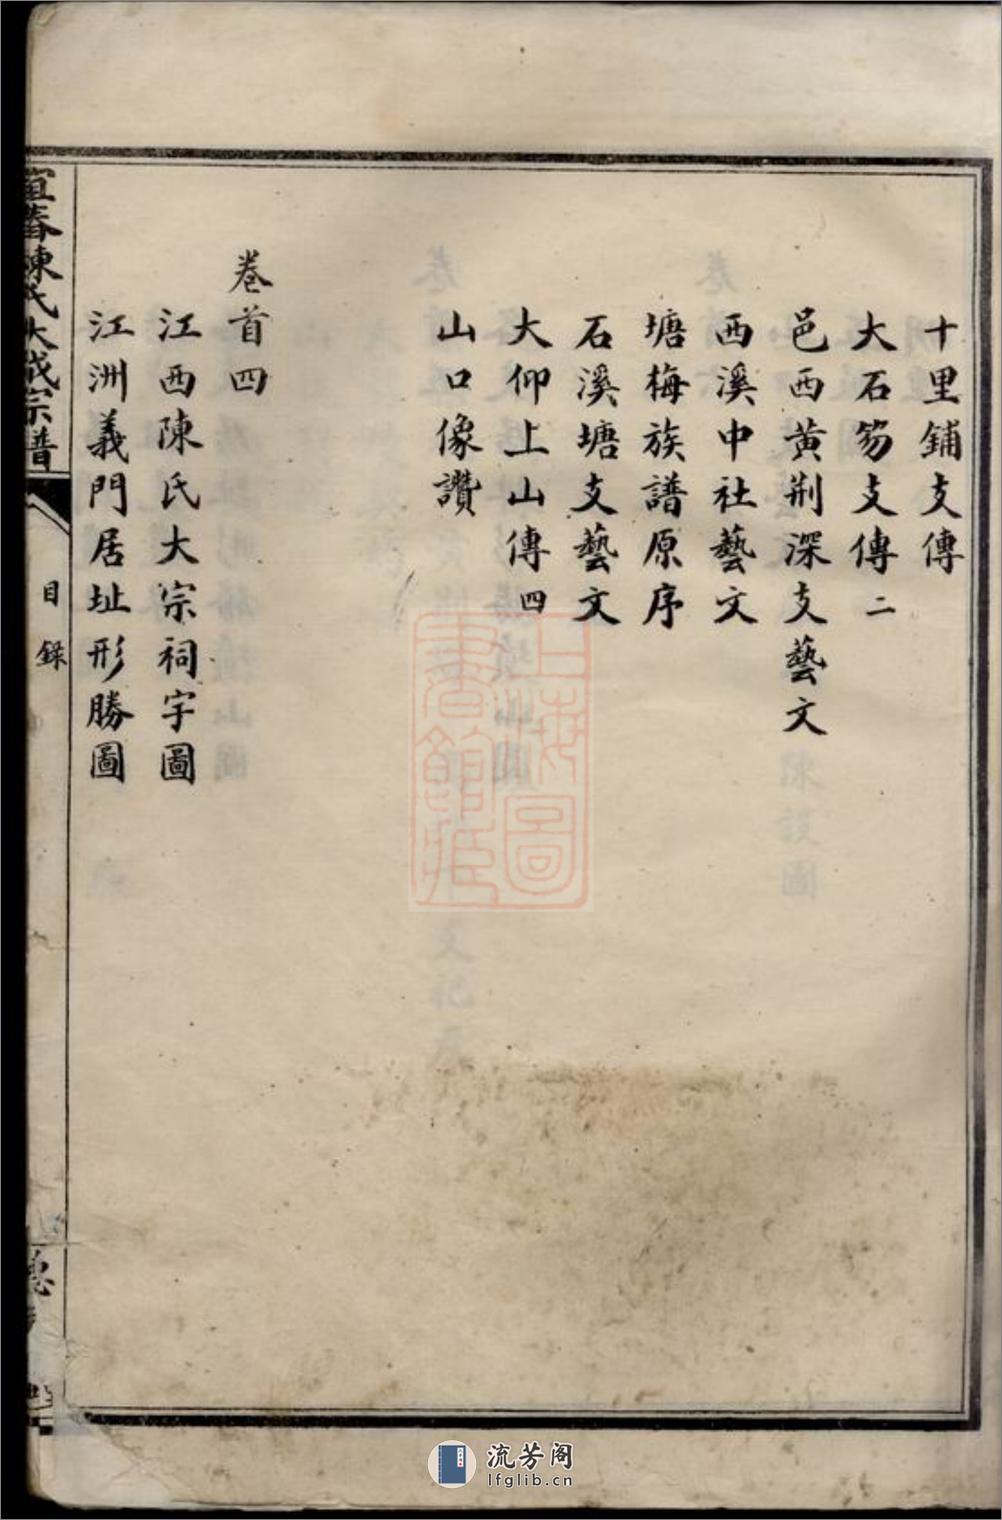 十里鋪支傳
大石笏支傳二
邑西黃荆深支藝文
西溪中社藝文
塘梅族譜原序
石溪塘支藝文
大仰上山傳四
山口像讚
卷首四
江西陳氏大宗祠宇圖
江洲義門居址形勝圖
宜春陳氏大成宗譜
目錄
德
上海圖書館藏
流芳阁
lfglib.cn